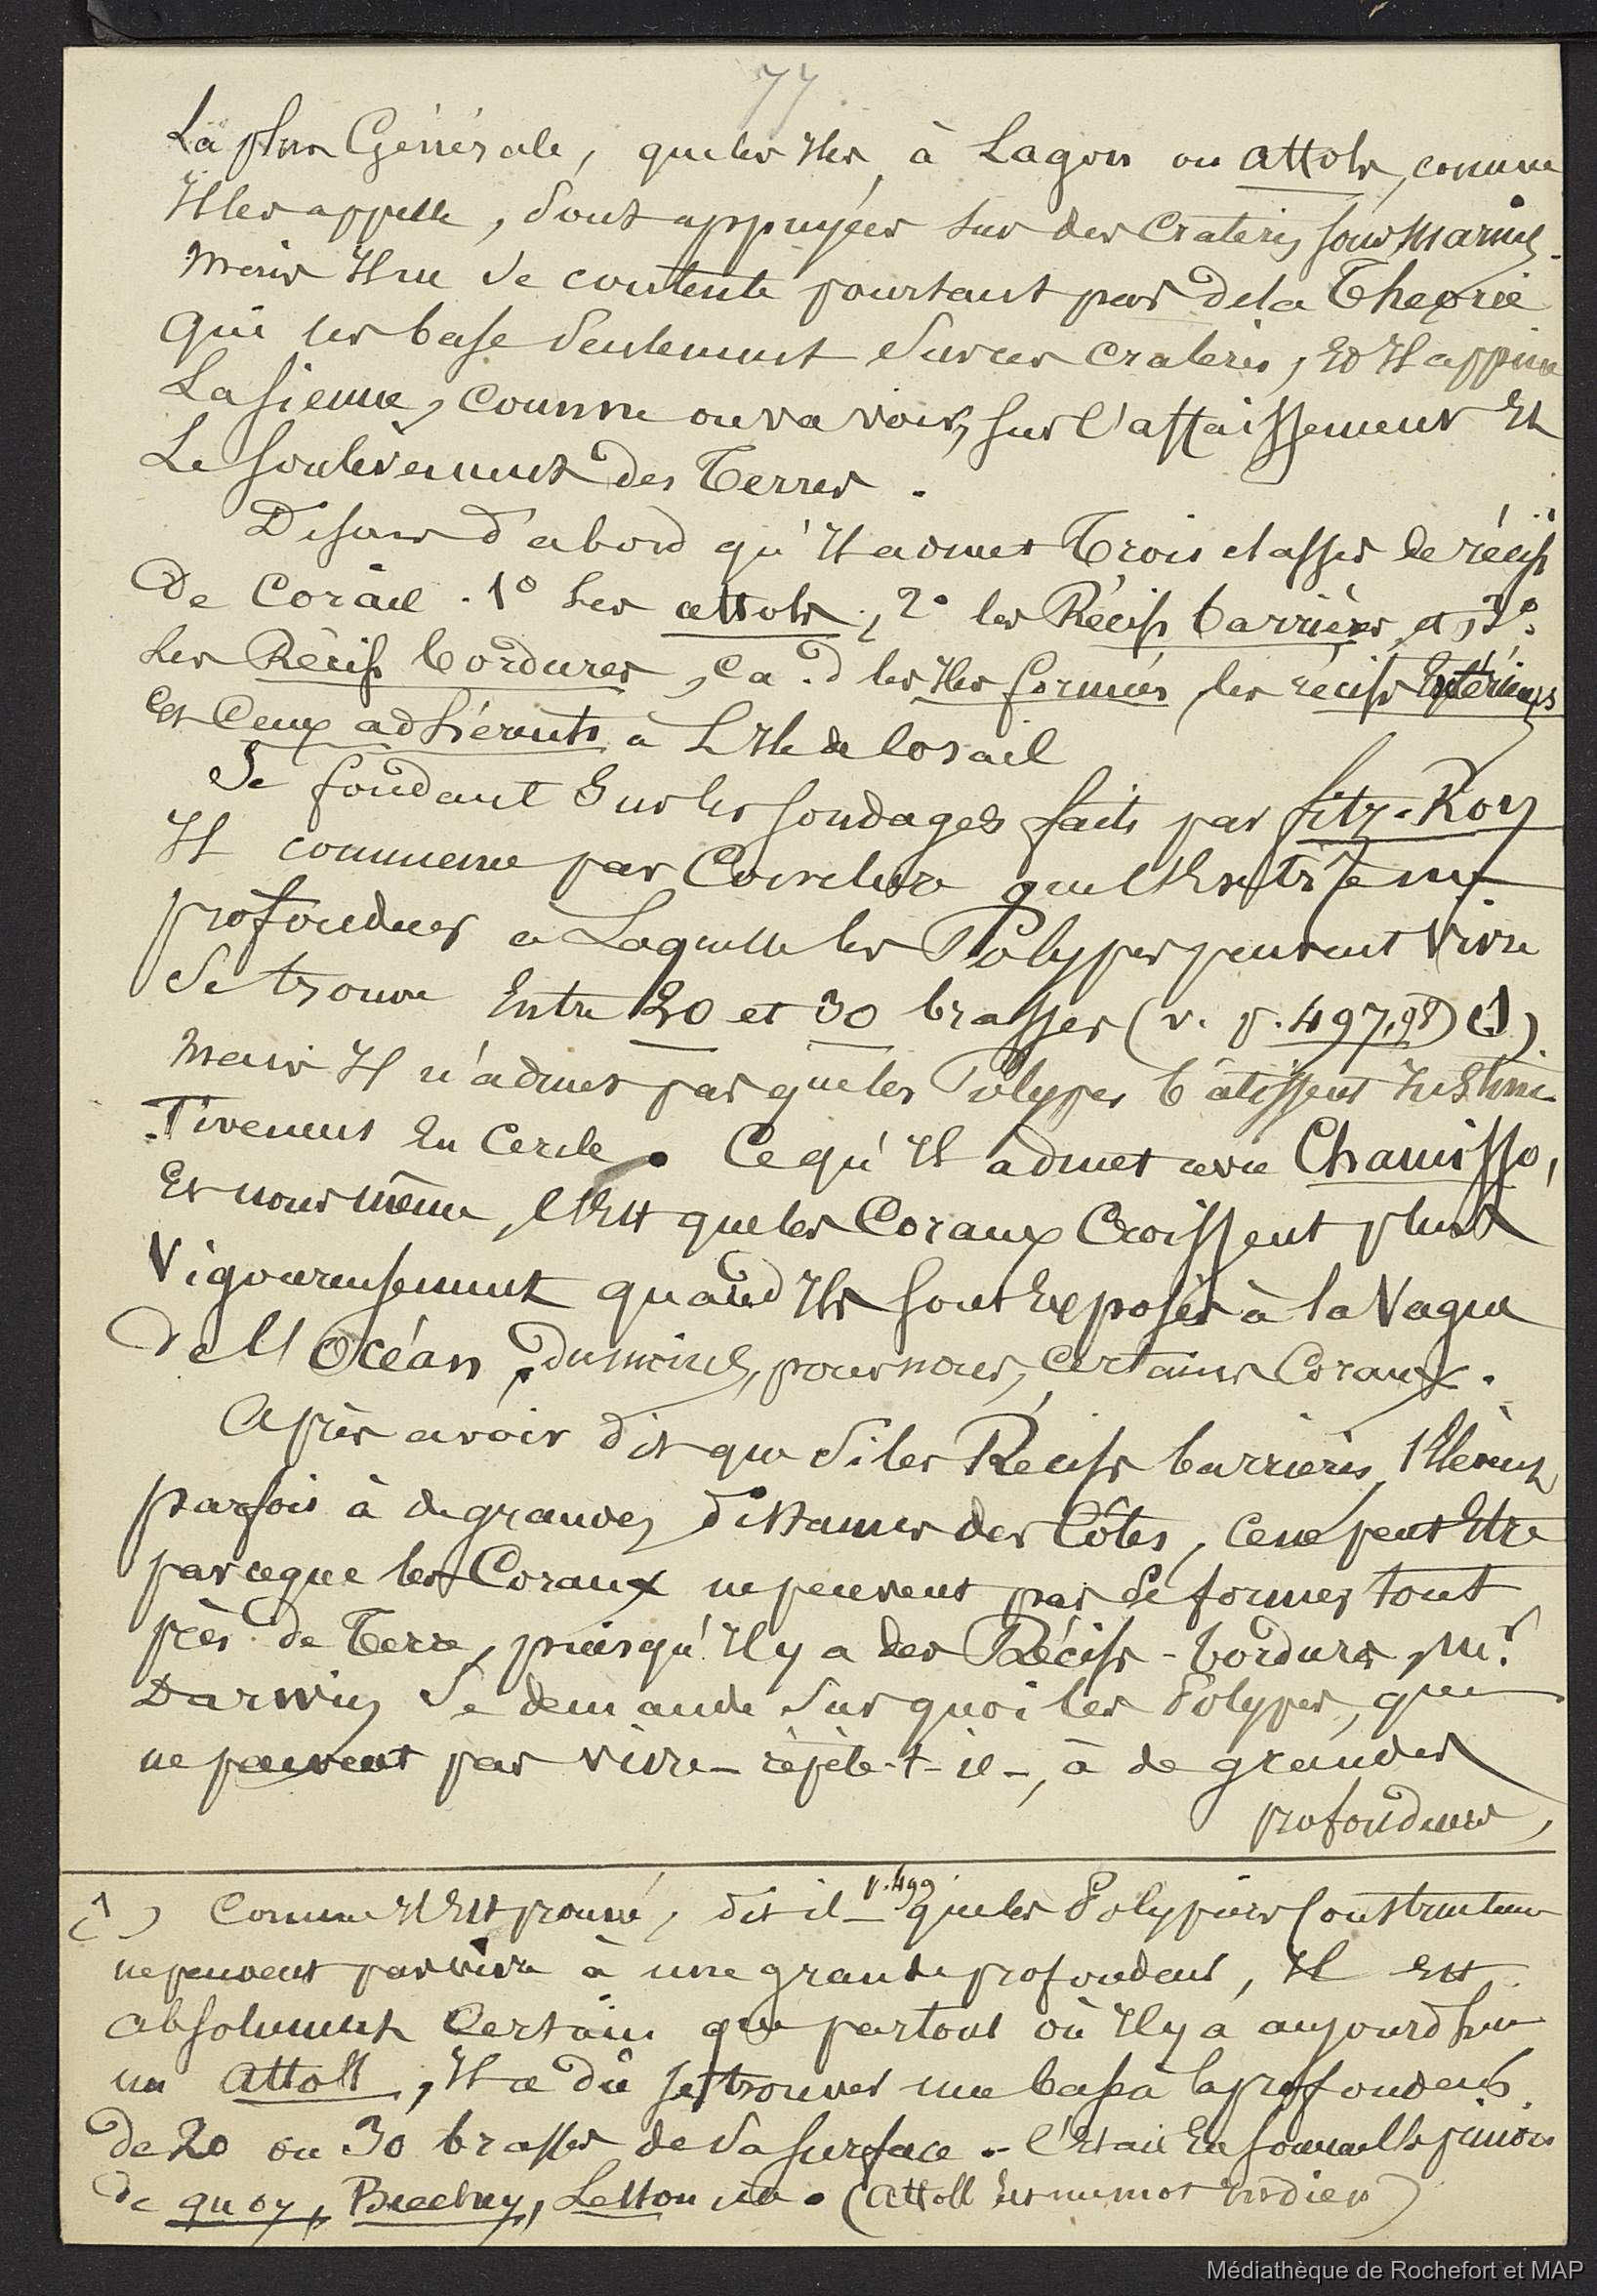 77
La plus Générale, que les Iles à Lagon ou attols, comme
Il les appelle, sont appuyées sur des cratères sous marins.
Mais Il ne se contente pourtant pas de la Théorie
qui les base seulement sur ces cratères, et Il appuie
La sienne, comme on va voir, sur l'affaissement Et
Le soulèvement des Terres.
Disons d'abord qu'Il admet Trois classes de récifs
De Corail. 1° Les attols, 2° les Récifs barrières et 3°.
Les Récifs bordures, c a. d les Iles formées, les récifs Extérieurs
et Ceux adhérents à L'Ile de Corail
Se fondant sur les sondages faits par fitz-Roy
Il commence par Conclure que l'Extrême
profondeur à Laquelle les Polypes peuvent Vivre
se trouve Entre 20 et 30 brasses (v. p. 497,98) (1)
Mais Il n'admet pas que les Polypes bâtissent Instinc-
-Tivement En Cercle. Ce qu'Il admet avec Chamisso,
Et nous même, c'Est que les Coraux Croissent plus
Vigoureusement quand Ils sont Exposés à la Vague
de l'Océan, du moins, pour nous, Certains Coraux.
Après avoir dit que si les Récifs barrières, s'Elèvent
parfois à de grandes distances des Côtes, ce ne peut Etre
parce que les Coraux ne peuvent pas se former tout
près de Terre, puisqu'Il y a des Récifs-bordures, Mr.
Darwin se demande sur quoi les Polypes, qui
ne peuvent pas vivre - répète-t-il -, à de grandes
profondeurs,
(1) Comme Il Est prouvé, dit il - p. 499 que les Polypiers Constructeurs
ne peuvent pas vivre à une grande profondeur, Il Est
absolument Certain que partout où Il y a aujourd'hui
un Attoll, Il a dû se trouver une base à la profondeur
de 20 ou 30 brasses de la surface. - C'Etait En somme l'opinion
de quoy, Beechey, Lesson. (Attoll Est un mot indien)
Médiathèque de Rochefort et MAP